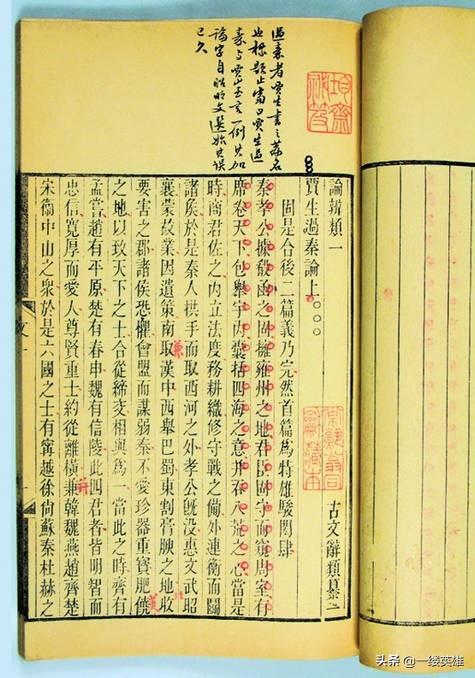 過秦者賈生書之篇名
也標題止當曰賈生過
秦与賈山至言一例其加
論字自昭明文選始其誤
已久
論辨類一
古文辭類篹一
賈生過秦論上○○○
固是合後二篇義乃完然首篇爲特雄駿閎肆
秦孝公據殽函之固擁雍州之地君臣固守而窺周室有
席卷天下包舉宇內囊括四海之意并吞八荒之心當是
時商君佐之內立法度務耕織修守戰之備外連衡而鬭
諸侯於是秦人拱手而取西河之外孝公旣没惠文武昭
襄蒙故業因遺策南取漢中西舉巴蜀東割膏腴之地收
要害之郡諸侯恐懼會盟而謀弱秦不愛珍器重寶肥饒
之地以致天下之士合從締交相與爲一當此之時齊有
孟嘗趙有平原楚有春申魏有信陵此四君者皆明智而
忠信寬厚而愛人尊賢重士約從離橫兼韓魏燕趙齊楚
宋衞中山之衆於是六國之士有甯越徐尙蘇秦杜赫之
头条 @一缕英雄